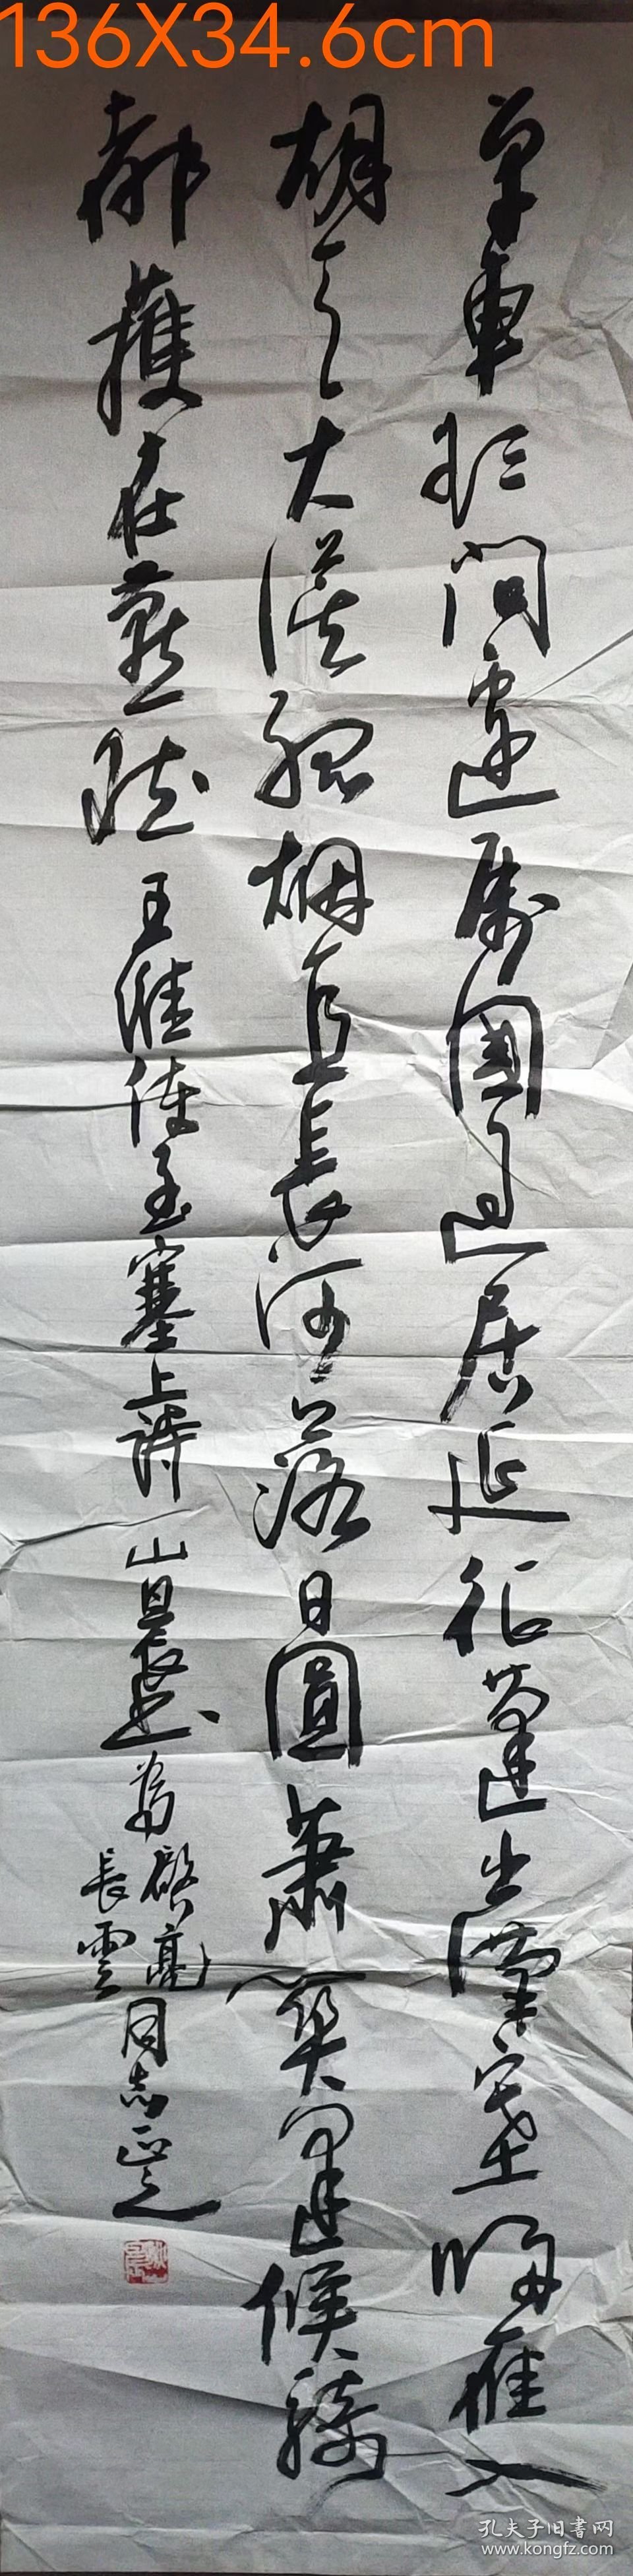 136X34.6cm
单車欲問邊屬國過居延征蓬出漢塞歸雁入
胡天大漠孤烟直長河落日圓蕭關逢候騎
都護在燕然
王維使至塞上詩
山昌長書為
啓亮
長雲
同志正之
孔夫子旧書网
www.kongfz.com